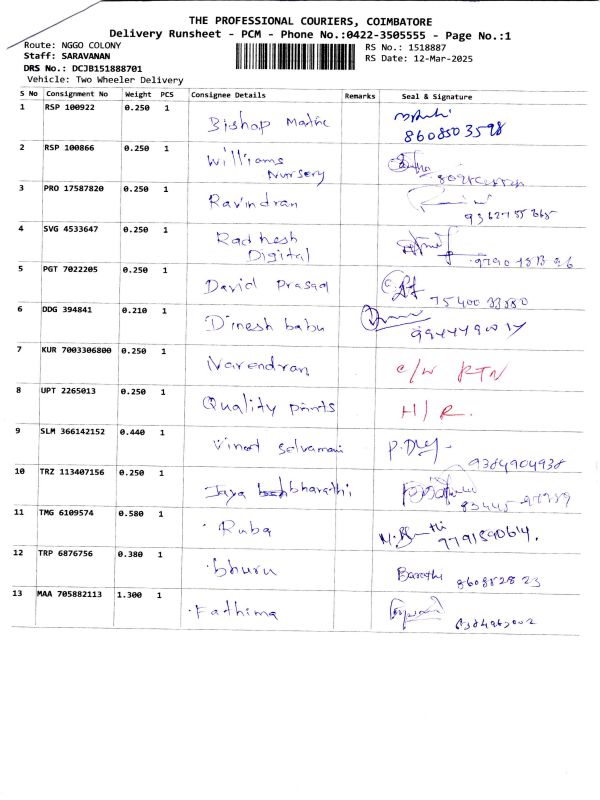 THE PROFESSIONAL COURIERS, COIMBATORE
Delivery Runsheet - PCM - Phone No.:0422-3505555 - Page No.:1
Route: NGGO COLONY
RS No.: 1518887
Staff: SARAVANAN
RS Date: 12-Mar-2025
DRS No.: DCJB151888701
Vehicle: Two Wheeler Delivery
S No Consignment No Weight PCS Consignee Details Remarks Seal & Signature
1 RSP 100922 0.250 1 Bishop
8608503598
2 RSP 100866 0.250 1 Williams
Nursery
3 PRO 17587820 0.250 1 Ravindran
4 SVG 4533647 0.250 1 Radhesh
Digital
5 PGT 7022205 0.250 1 David Prasad
6 DDG 394841 0.210 1 Dinesh babu
7 KUR 7003306800 0.250 1 Narendran C/W RTN
8 UPT 2265013 0.250 1 Quality prints H/R.
9 SLM 366142152 0.440 1
9384904938
10 TRZ 113407156 0.250 1 Jaya bharathi
11 TMG 6109574 0.580 1 Ruba
9791590614.
12 TRP 6876756 0.380 1 bhuru Barathi
13 MAA 705882113 1.300 1 Fathima